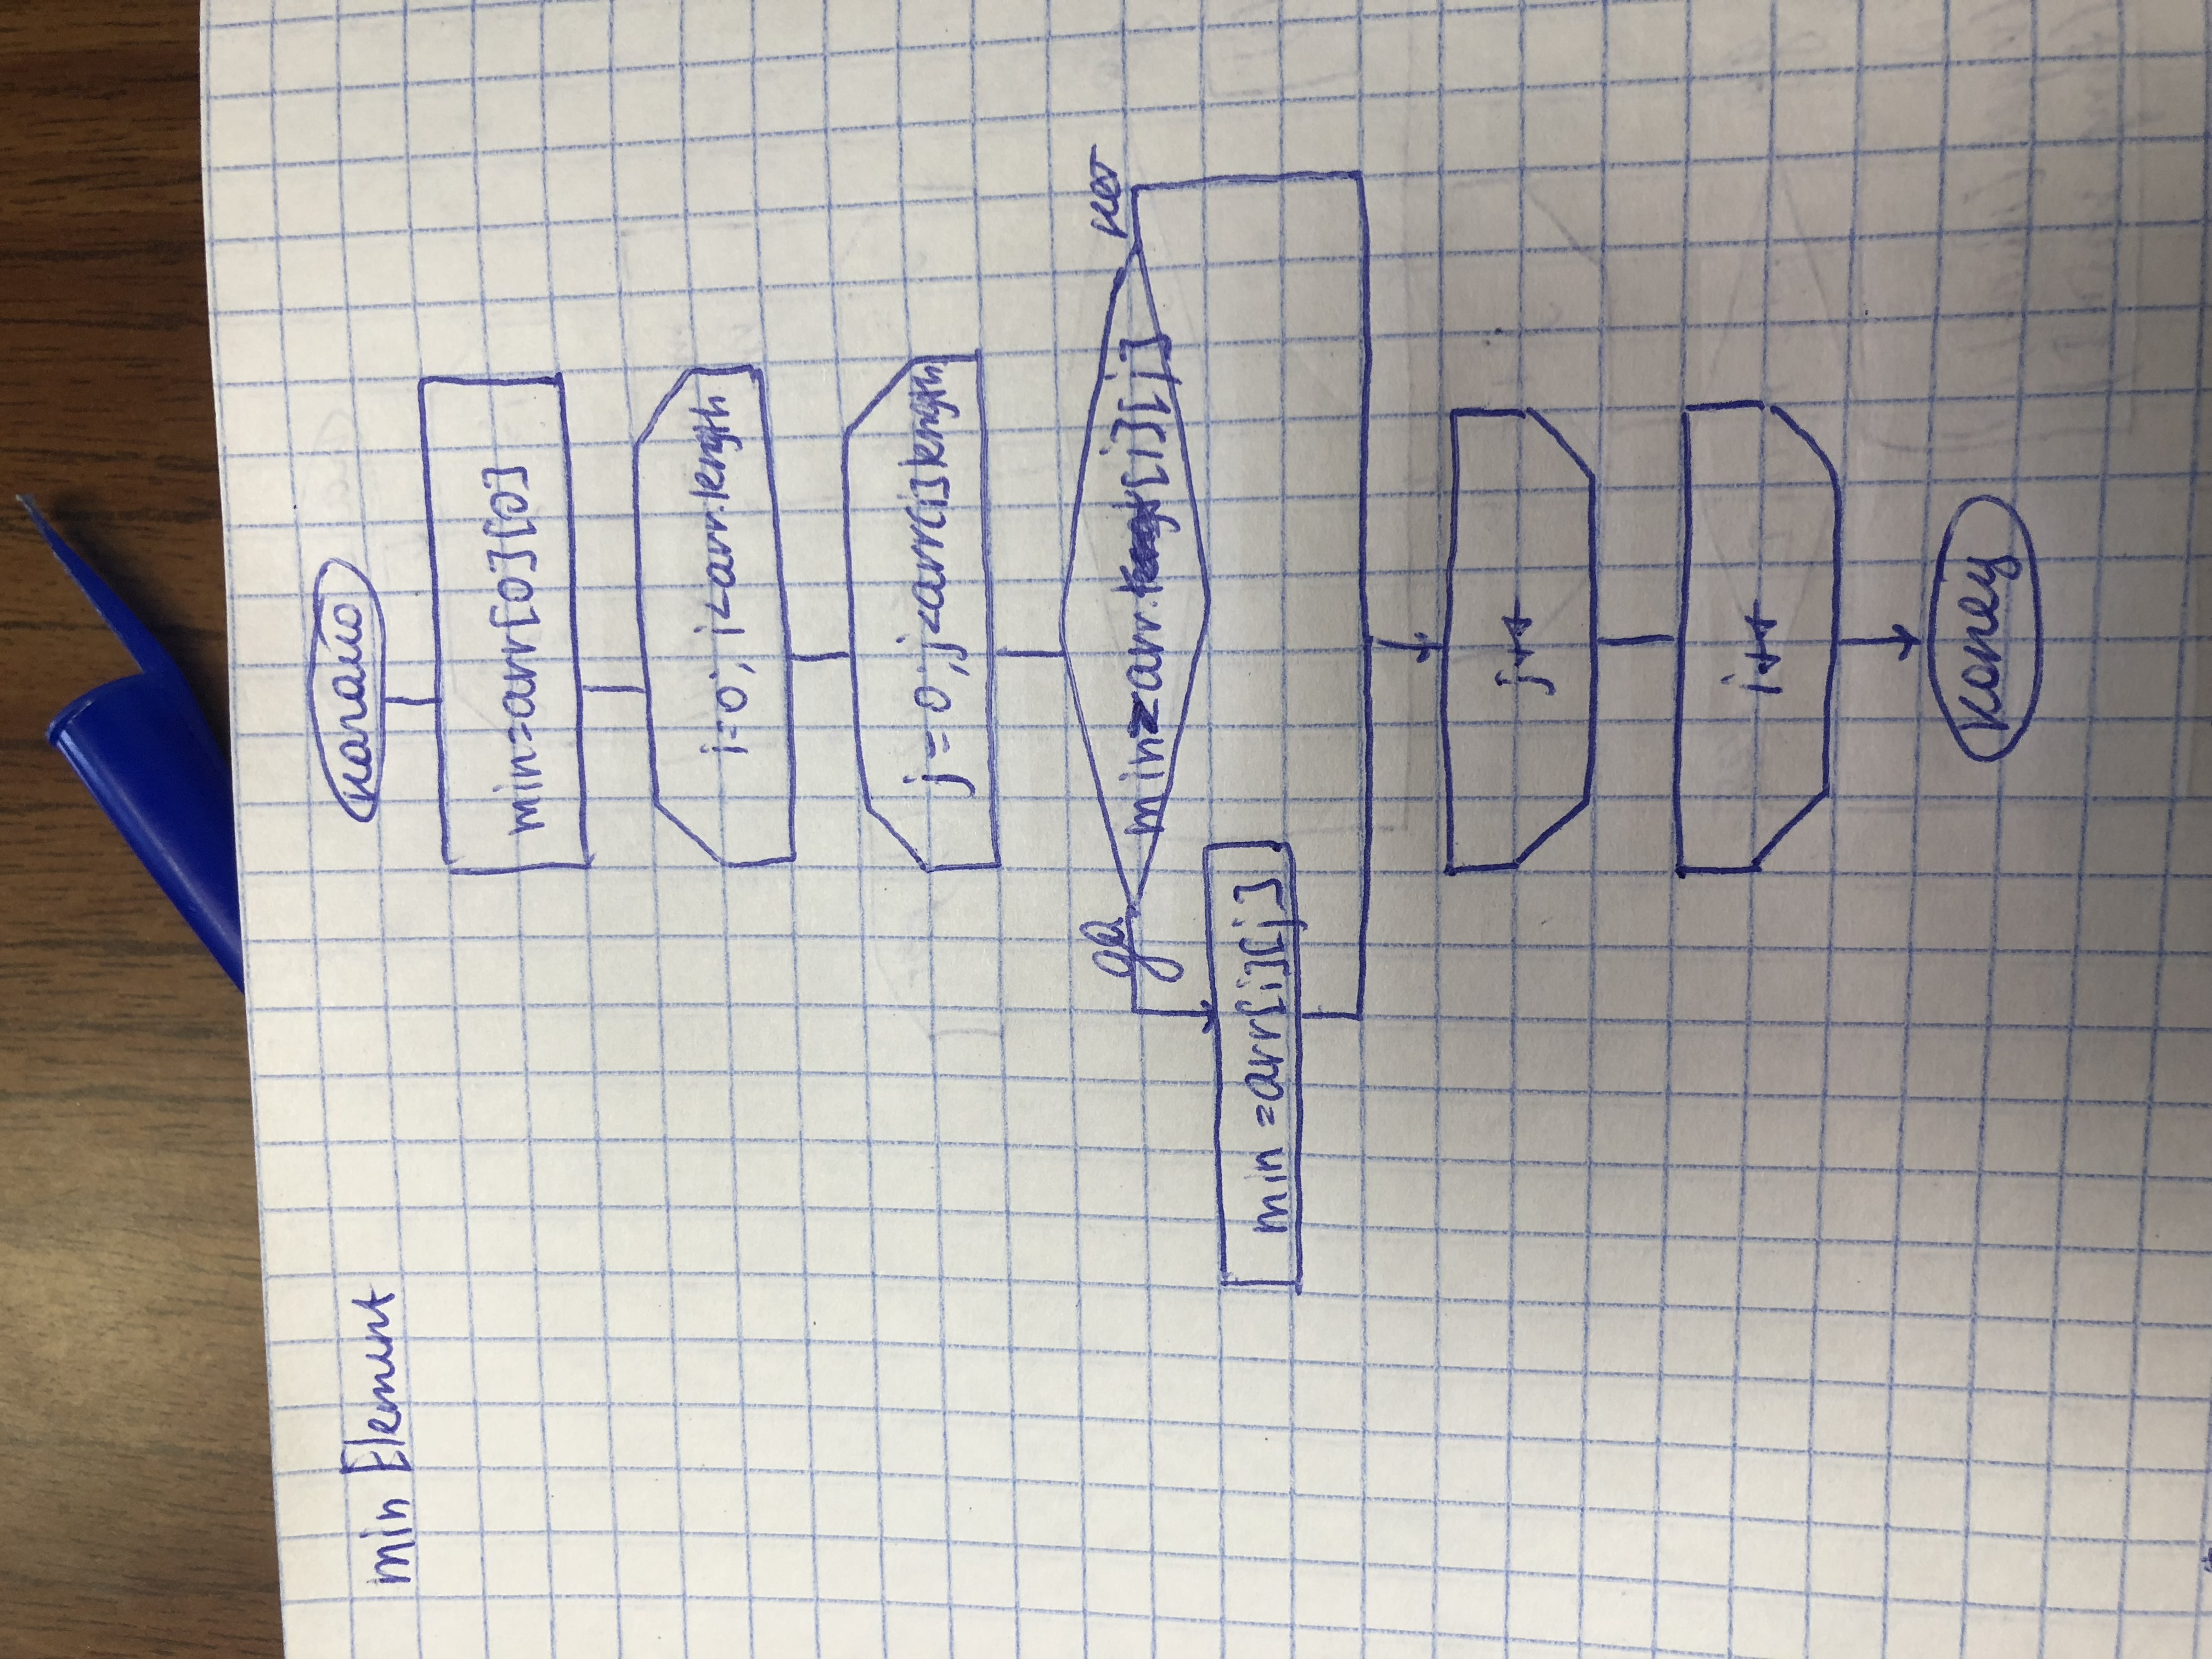 min Element
начало
min=arr[0][0]
i=0; i<arr.length
j=0; j<arr[i]length
да
нет
min>arr.[i][j]
min=arr[i][j]
j++
i++
конец